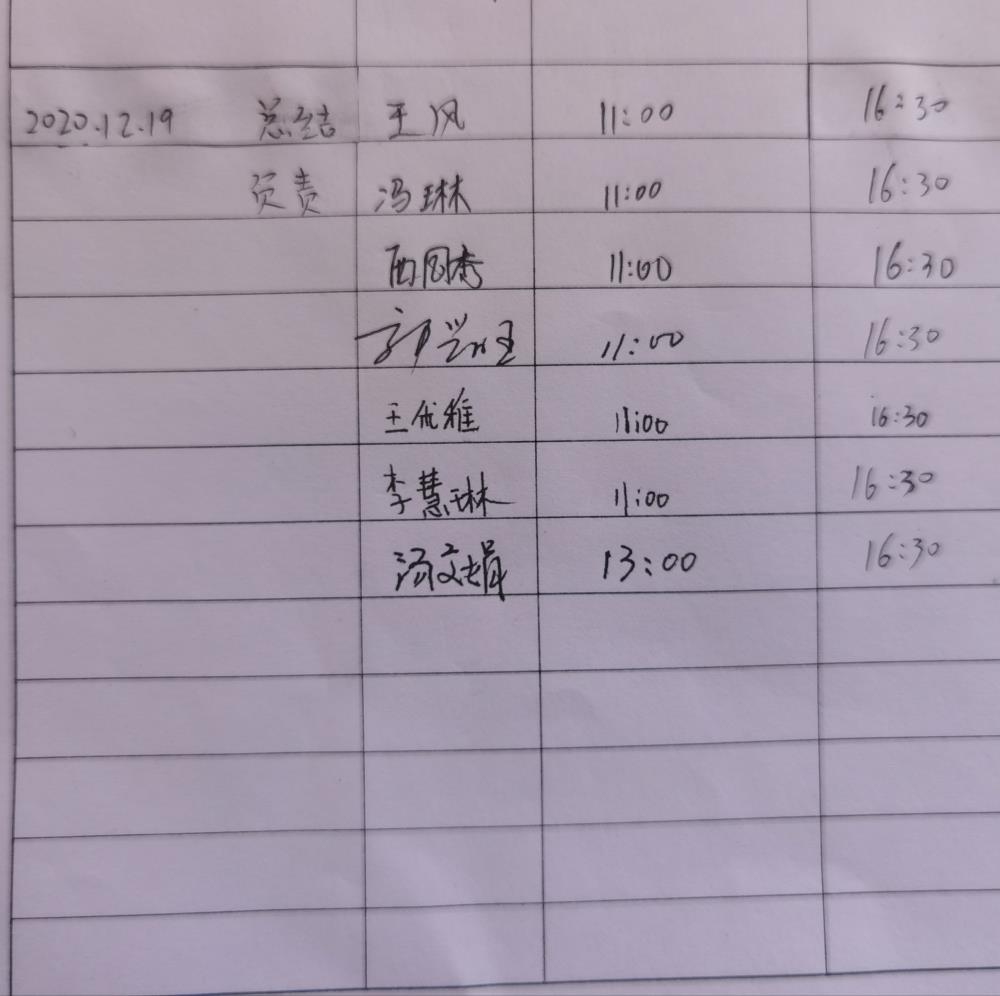 2020.12.19 总结 王风 11:00 16:30
负责 冯琳 11:00 16:30
11:00 16:30
郭兴旺 11:00 16:30
王优雅 11:00 16:30
李慧琳 11:00 16:30
汤文娟 13:00 16:30